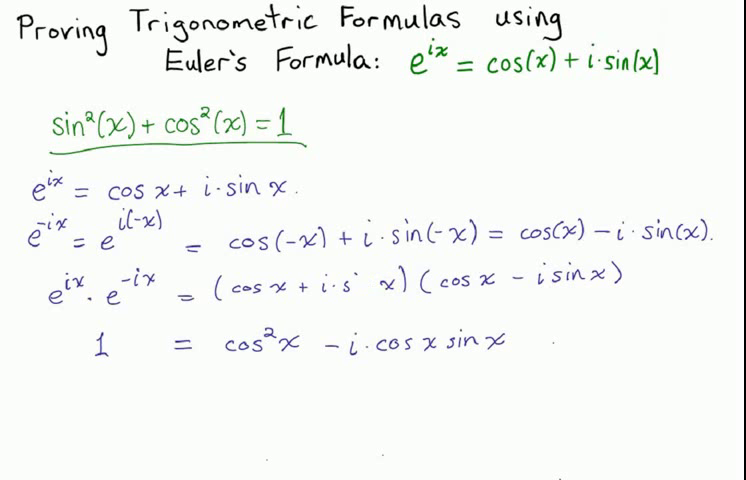 Proving Trigonometric Formulas using
Euler's Formula: e^{ix} = cos(x) + i·sin(x)
sin²(x) + cos²(x) = 1
e^{ix} = cos x + i·sin x.
e^{-ix} = e^{i(-x)} = cos(-x) + i·sin(-x) = cos(x) - i·sin(x).
e^{ix}·e^{-ix} = (cos x + i·s x)(cos x - i sin x)
1 = cos²x - i·cos x sin x